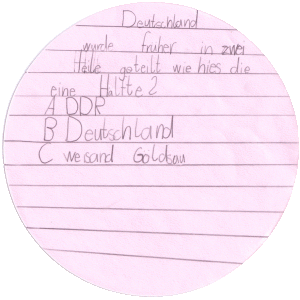 Deutschland
wurde fruher in zwei
Häile geteilt wie hies die
eine Halfte?
A DDR
B Deutschland
C wesand Goldsau